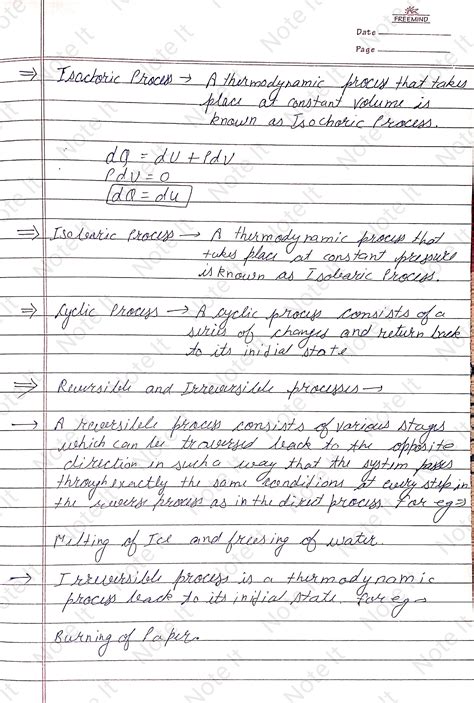 FREEMIND
Date
Page
⇒ Isochoric Process → A thermodynamic process that takes
place at constant volume is
known as Isochoric Process.
dQ = dU + PdV
PdV = 0
dQ = dU
⇒ Isobaric Process → A thermodynamic process that
takes place at constant pressure
is known as Isobaric Process.
⇒ Cyclic Process → A cyclic process consists of a
series of changes and return back
to its initial state
⇒ Reversible and Irreversible processes →
→ A reversible process consists of various stages
which can be traversed back to the opposite
direction in such a way that the system passes
through exactly the same conditions at every step in
the reverse process as in the direct process. For eg →
Melting of Ice and freesing of water.
→ Irreversible process is a thermodynamic
process back to its initial state. For eg →
Burning of Paper.
Note It